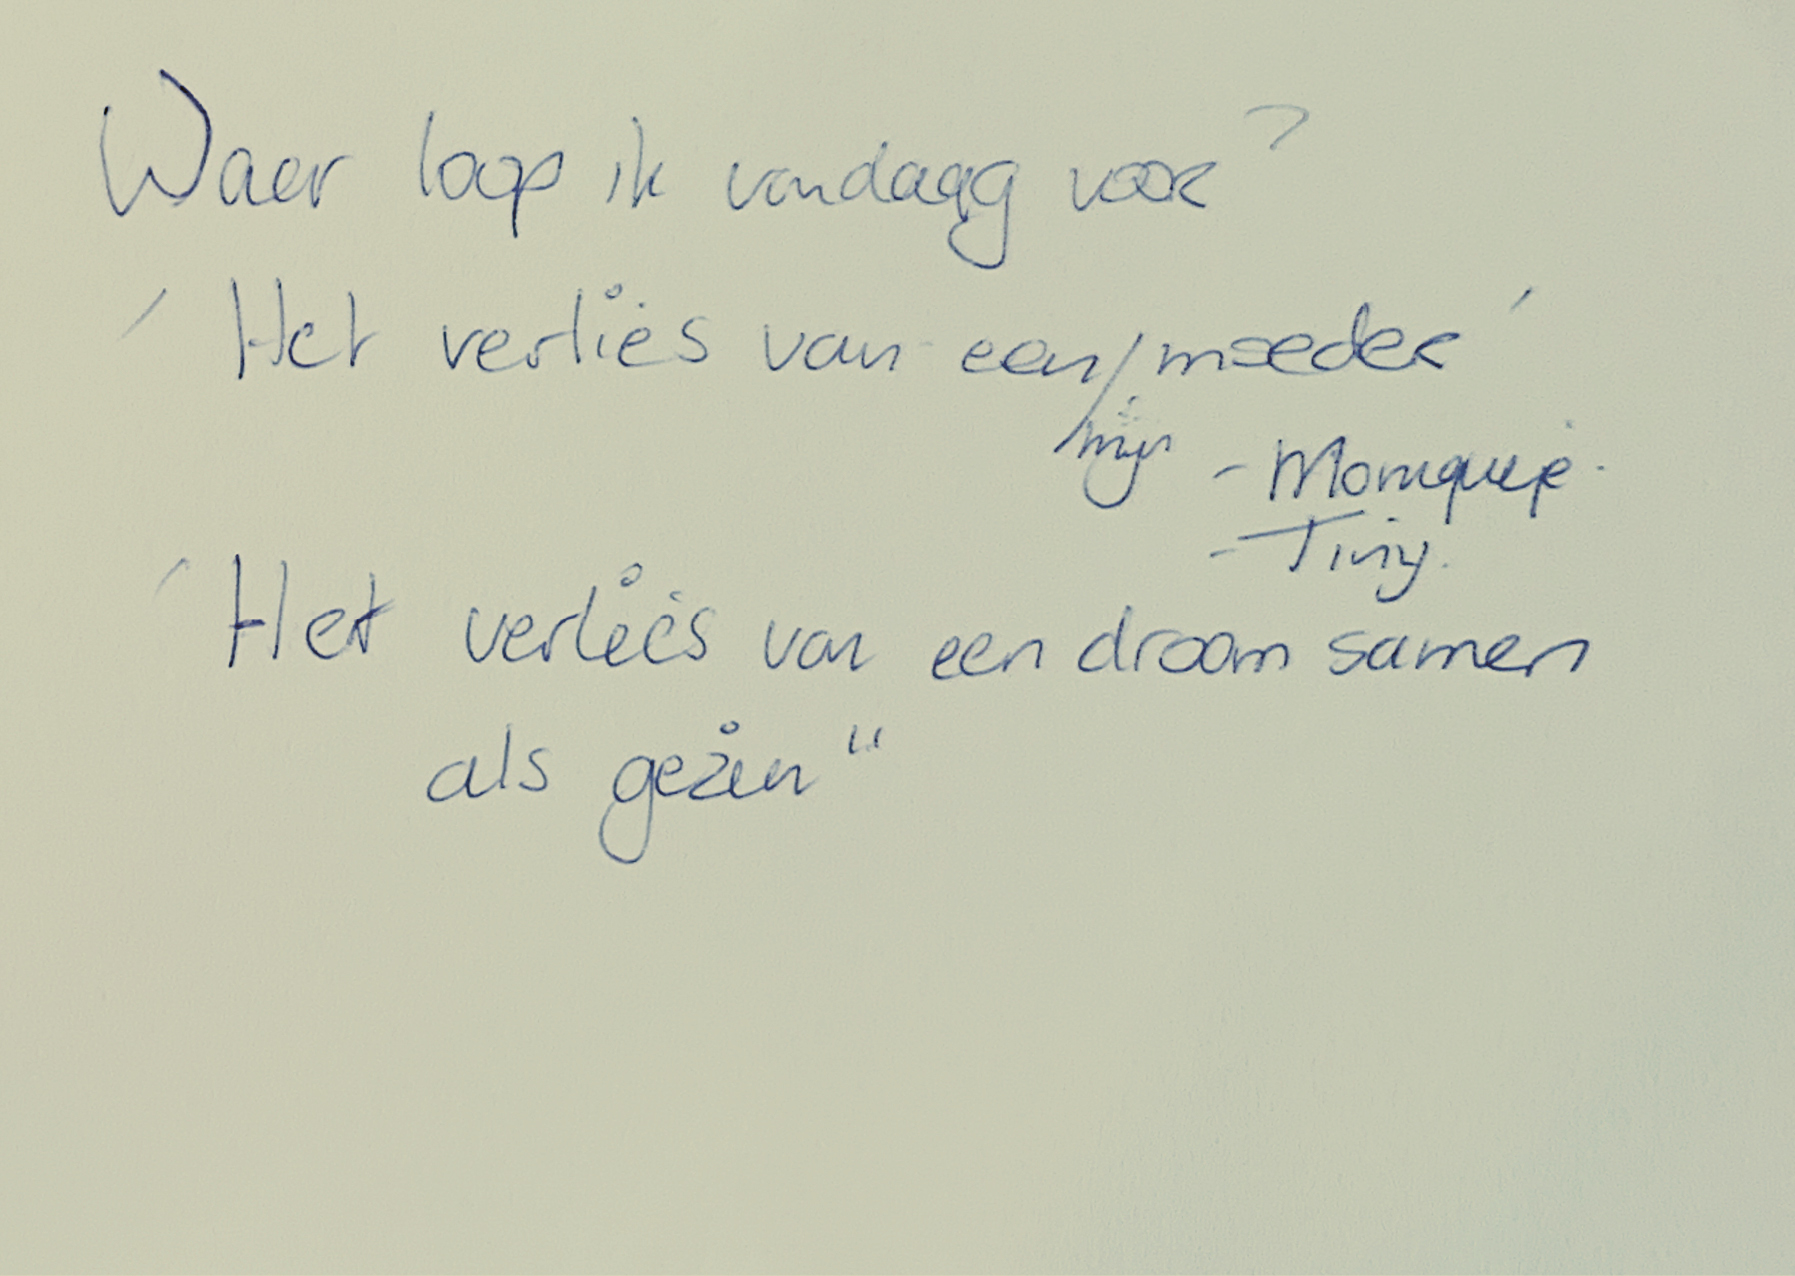 Waar loop ik vandaag voor?
' Het verlies van een/moeder '
mijn - Monique.
- Tiny.
' Het verlies van een droom samen
als gezin "